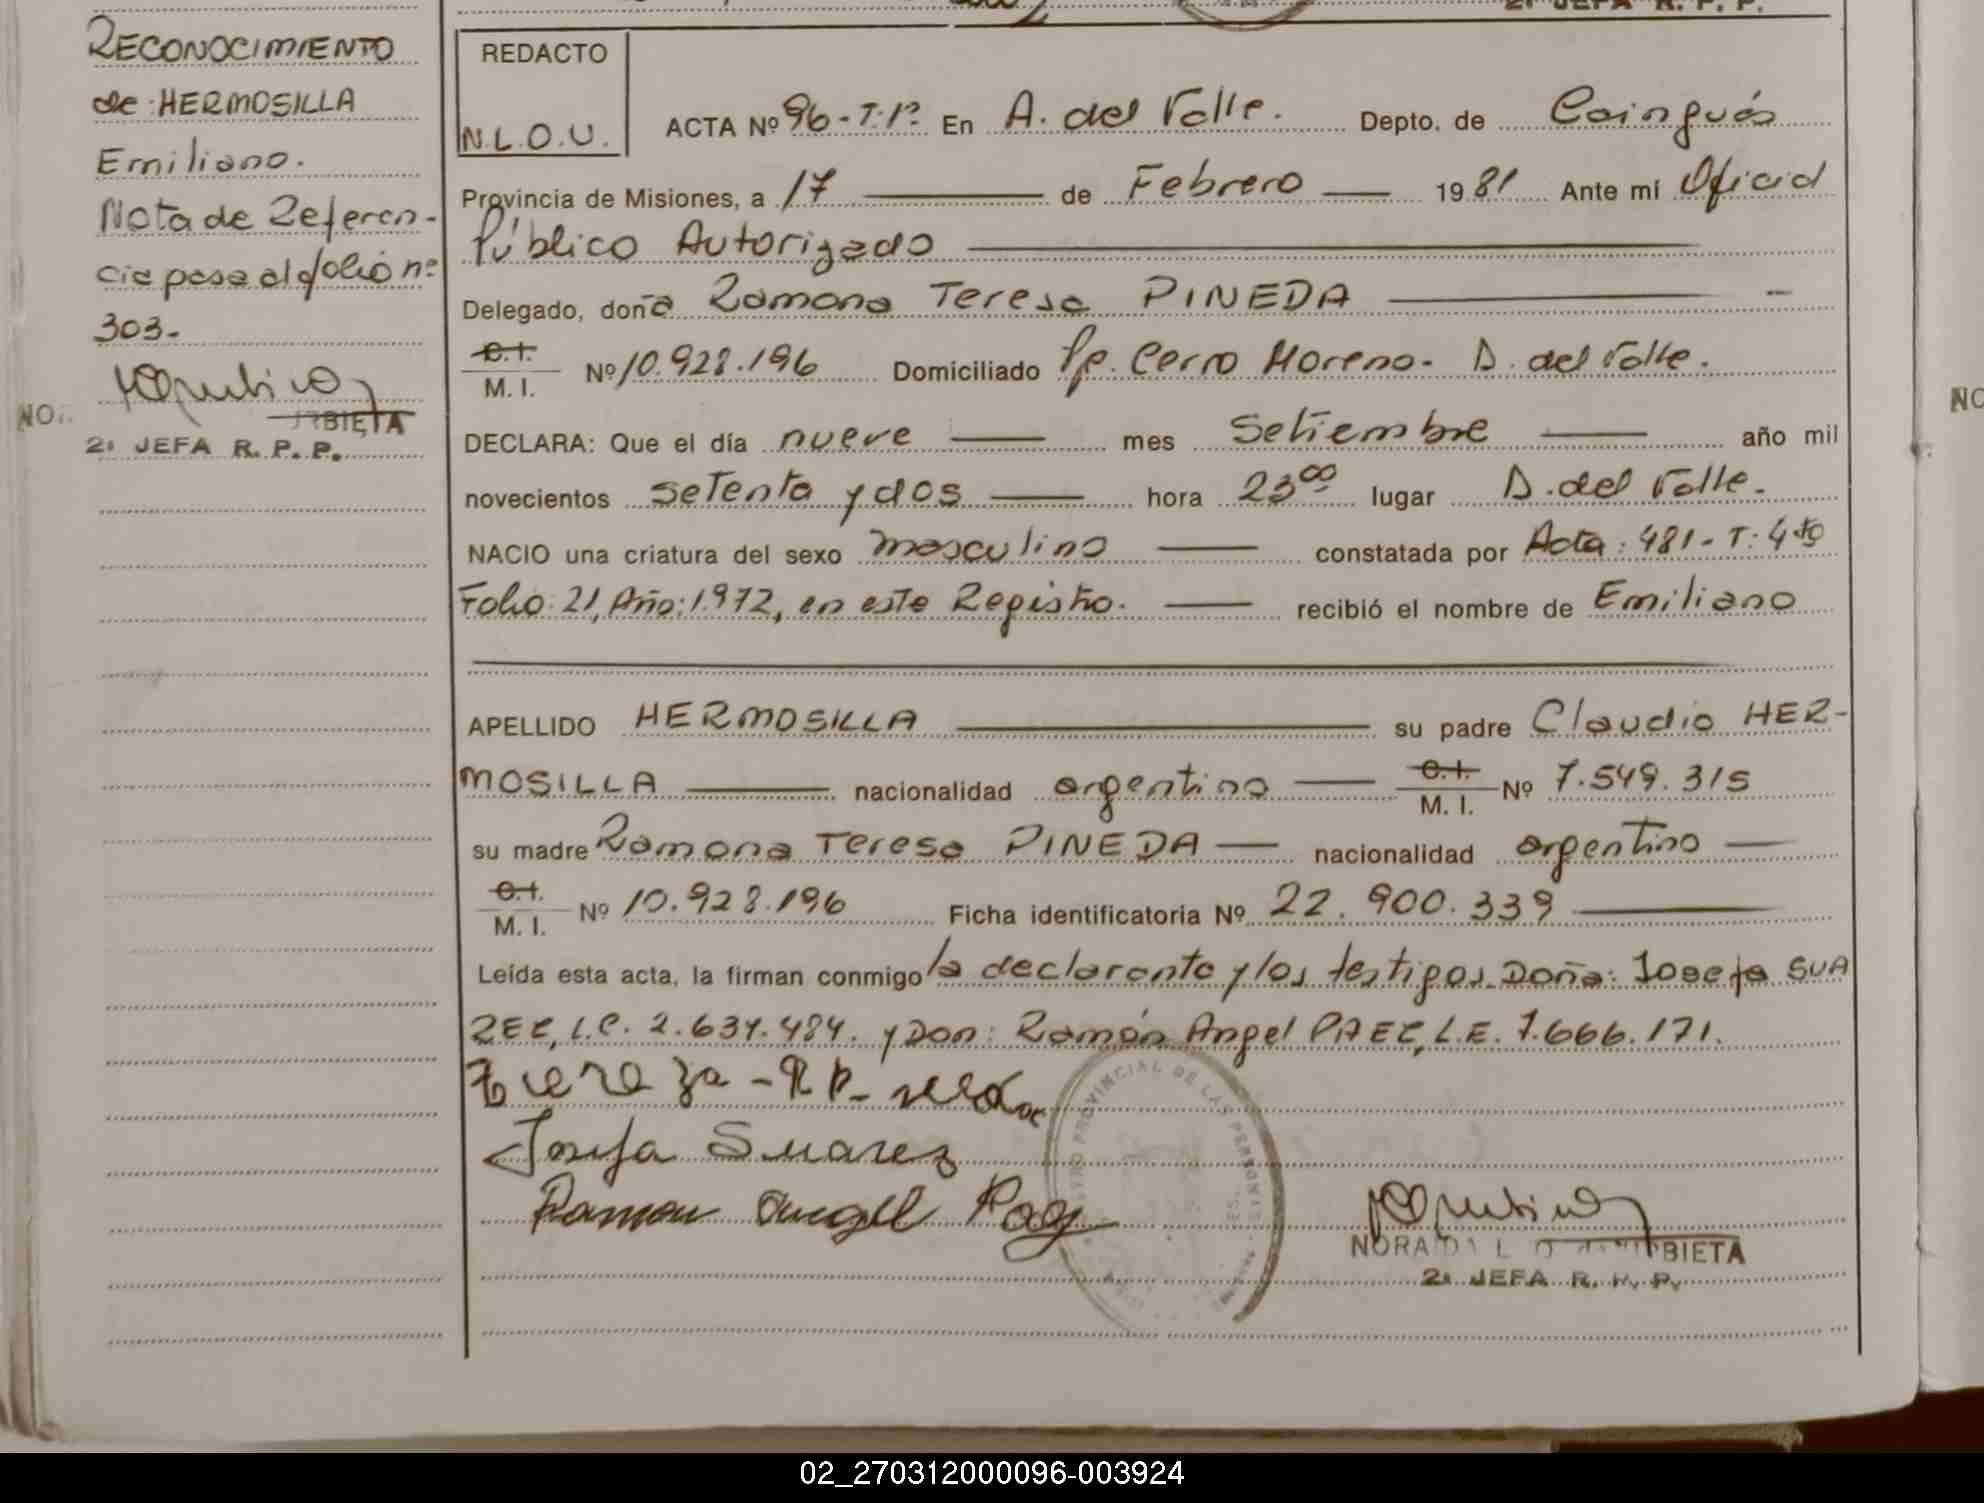 RECONOCIMIENTO
de: HERMOSILLA
Emiliano.
Nota de Referen-
cia pasa al folio nº
303-
BIETA
2a JEFA R. P. P.
NO
2a JEFA R. P. P.
REDACTO
N.L.O.U.
ACTA Nº 96-T.1º En A. del Valle. Depto. de Cainguás
Provincia de Misiones, a 17 — de Febrero — 1981 Ante mí Oficial
Público Autorizado —
Delegado, doña Ramona Teresa PINEDA —
C.I.
M. I. Nº 10.928.196 Domiciliado Pje. Cerro Moreno- A. del Valle.
DECLARA: Que el día nueve — mes Setiembre — año mil
novecientos setenta y dos — hora 23⁰⁰ lugar A. del Valle.
NACIO una criatura del sexo masculino — constatada por Acta: 481-T: 4to
Folio: 21, Año: 1.972, en este Registro. — recibió el nombre de Emiliano
APELLIDO HERMOSILLA — su padre Claudio HER-
MOSILLA — nacionalidad argentino — C.I. M. I. Nº 7.549.315
su madre Ramona Teresa PINEDA — nacionalidad argentino —
C.I.
M. I. Nº 10.928.196 Ficha identificatoria Nº 22.900.339 —
Leída esta acta, la firman conmigo la declarante y los testigos Doña: Josefa SUA
REZ, L.C. 2.634.484. y Don: Ramón Angel PAEZ, L.E. 7.666.171.
Josefa Suarez
Ramon Angel Paez
PROVINCIAL DE LAS PERSONAS
NORA BIETA
2a JEFA R. P. P.
NO
02_270312000096-003924